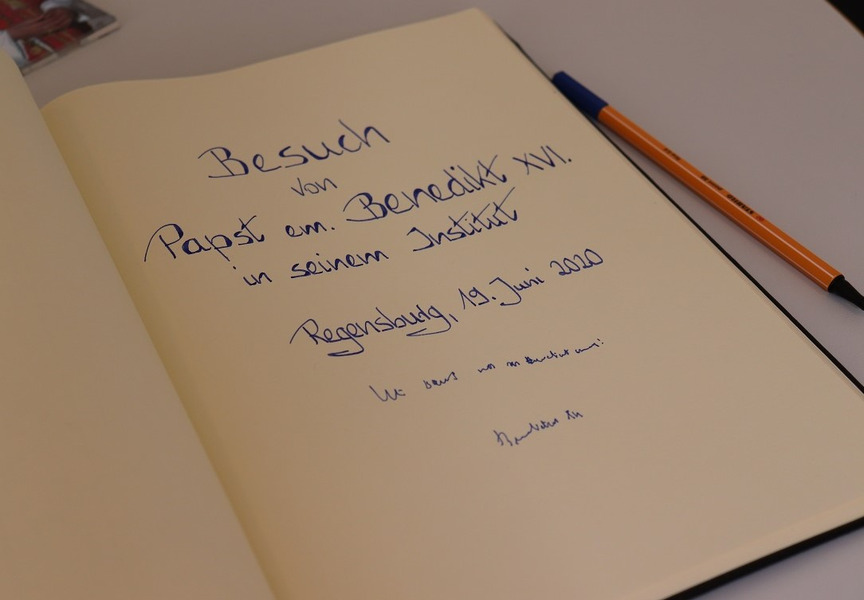 Besuch
von
Papst em. Benedikt XVI.
in seinem Institut
Regensburg, 19. Juni 2020